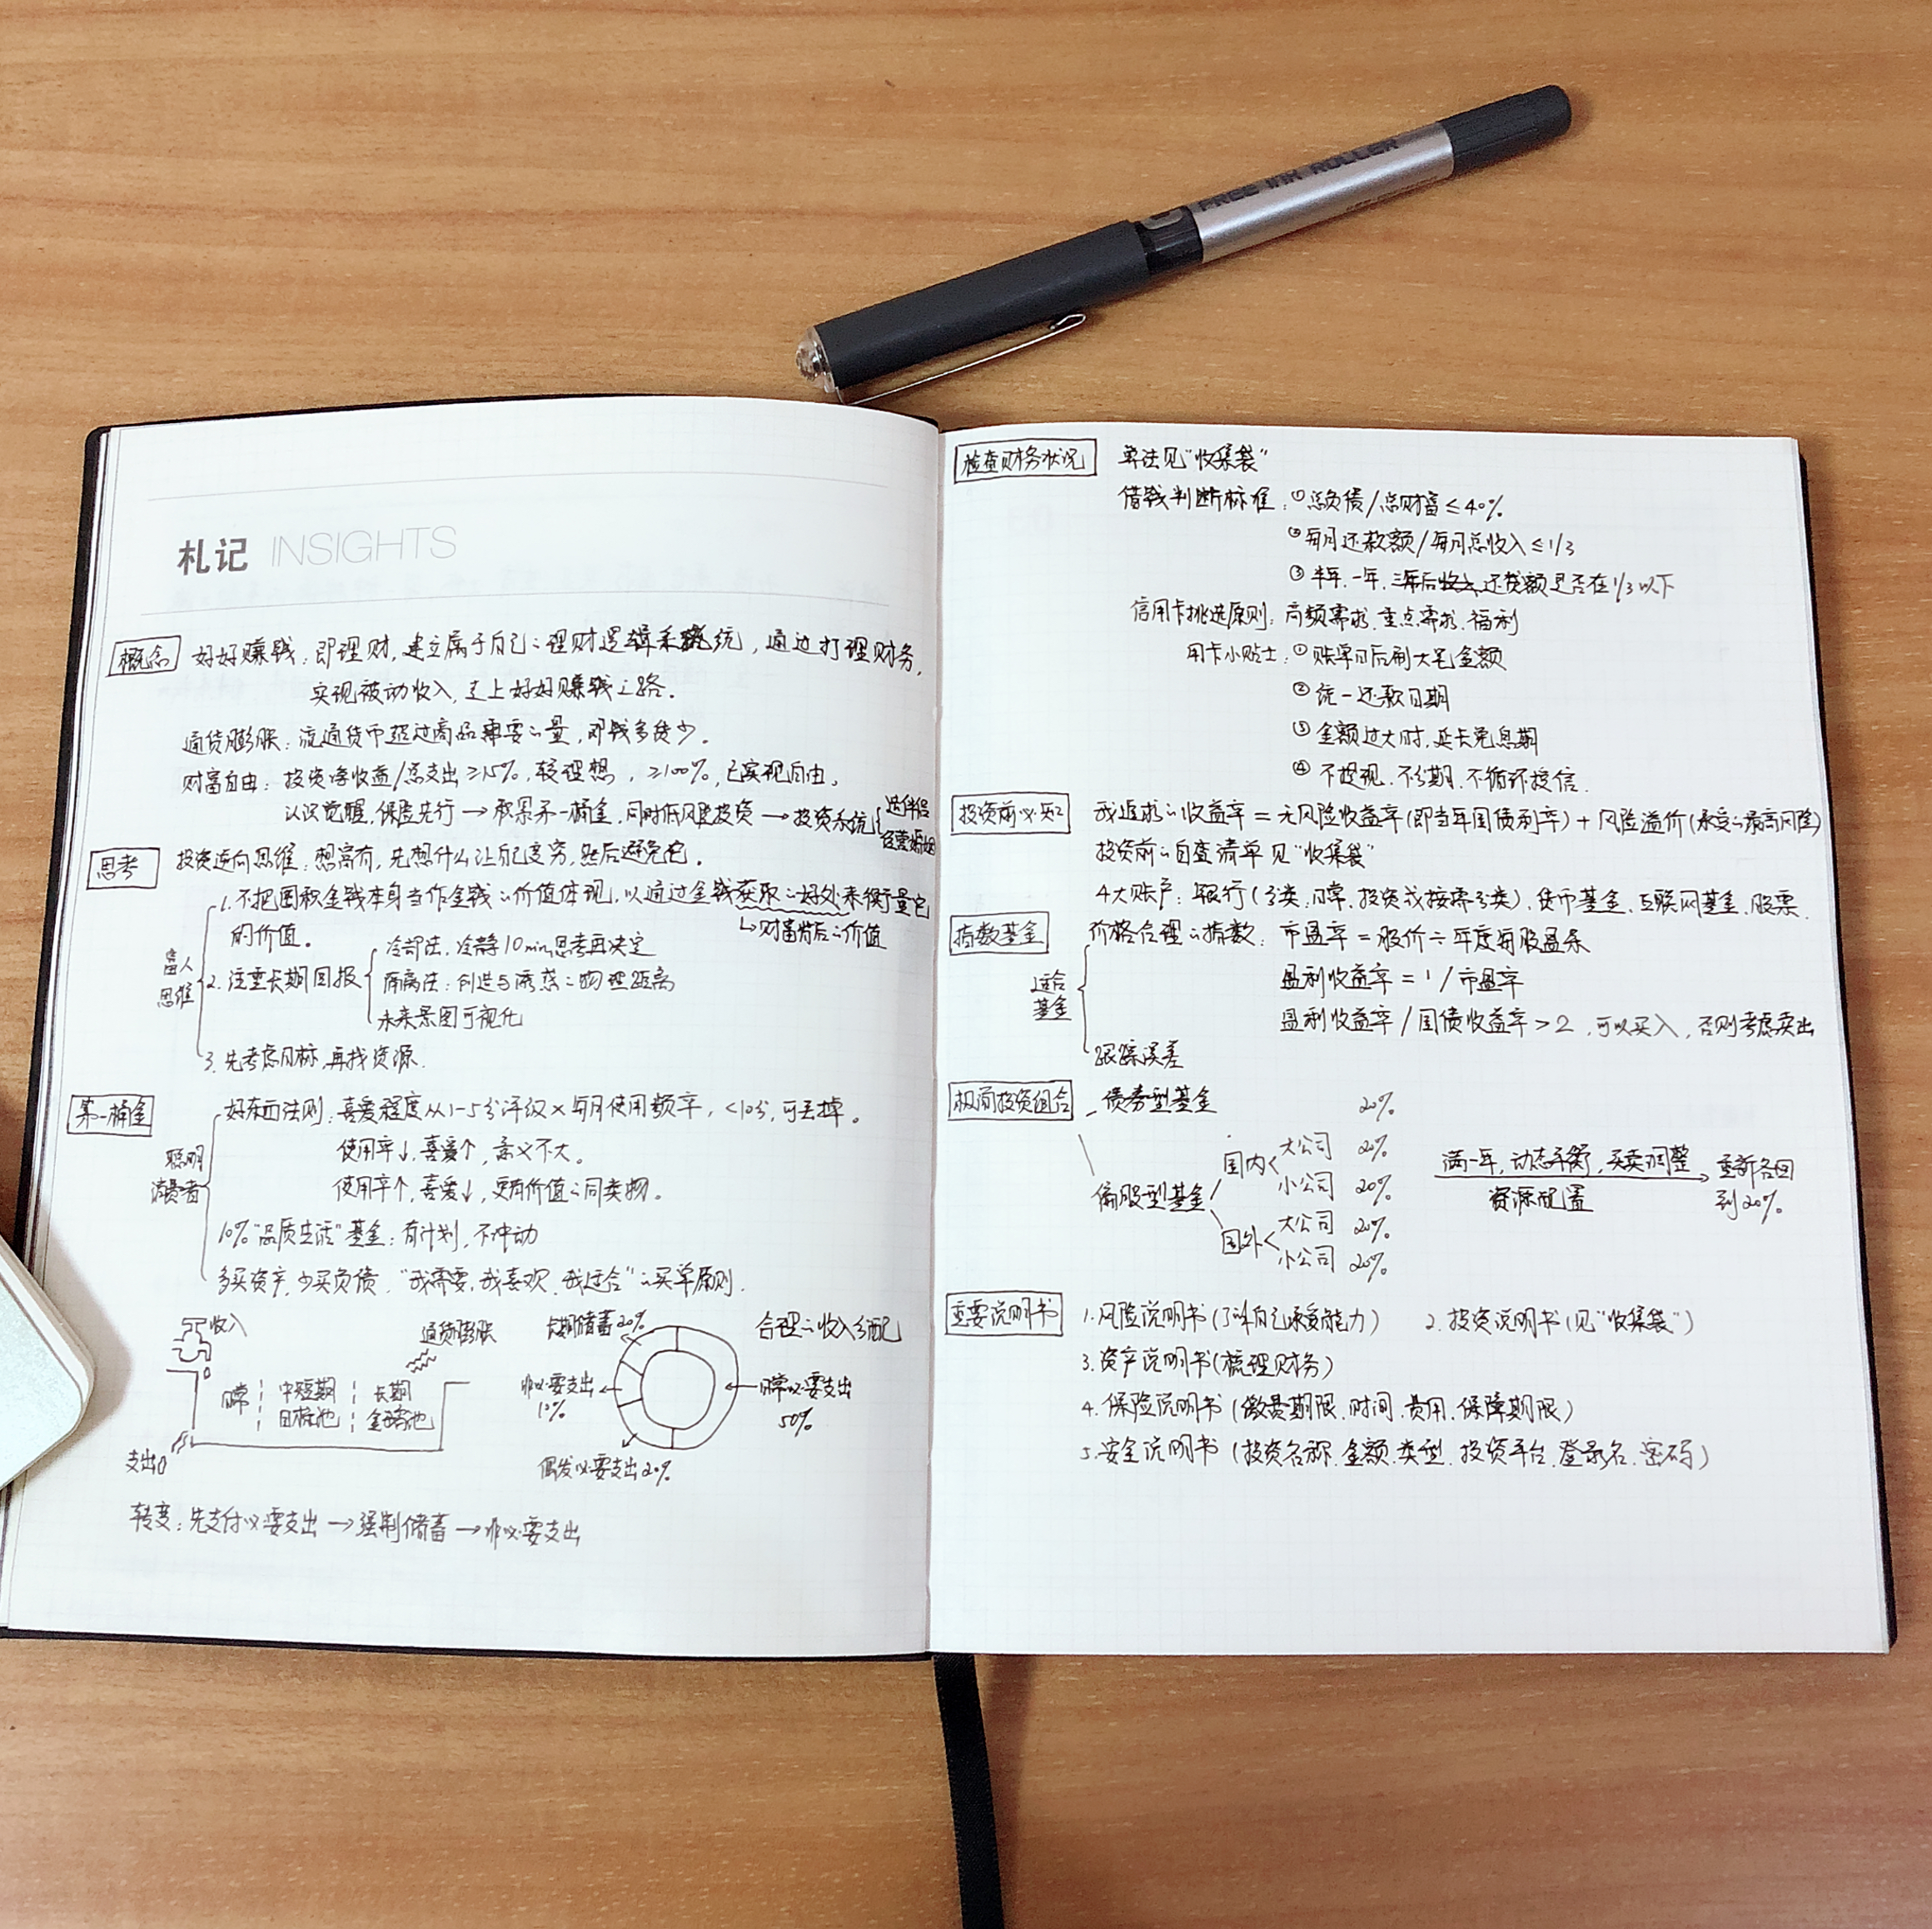 FREE INK ROLLER
札记 INSIGHTS
概念 好好赚钱：即理财，建立属于自己的理财逻辑系统，通过打理财务，
实现被动收入，走上好好赚钱之路。
通货膨胀：流通货币超过商品需要的量，即钱多货少。
财富自由：投资净收益/总支出≥15%，较理想，≥100%，已实现自由。
认识觉醒，保险先行→积累第一桶金，同时低风险投资→投资系统
选伴侣
经营婚姻
思考 投资逆向思维：想富有，先想什么让自己变穷，然后避免它。
富人思维
1. 不把囤积金钱本身当作金钱的价值体现，以通过金钱获取的好处来衡量它
的价值。
↳财富背后的价值
2. 注重长期回报
冷却法：冷静10min思考再决定
隔离法：创造与诱惑的物理距离
未来景图可视化
3. 先考虑目标，再找资源.
第一桶金
聪明消费者
好东西法则：喜爱程度从1-5分评级×每月使用频率，<10分，可丢掉。
使用率↓，喜爱↑，意义不大。
使用率↑，喜爱↓，更有价值的同类物。
10%“品质生活”基金：有计划，不冲动
多买资产，少买负债，“我需要，我喜欢，我适合”的买单原则.
收入
通货膨胀
日常 中短期目标池 长期金鹅池
支出
长期储蓄20%
合理的收入分配
非必要支出
10%
日常必要支出
50%
偶发必要支出20%
转变：先支付必要支出→强制储蓄→非必要支出
检查财务状况 算法见“收集袋”
借钱判断标准：①总负债/总财富≤40%
②每月还款额/每月总收入≤1/3
③半年.一年.三年后还贷额是否在1/3以下
信用卡挑选原则：高频需求.重点需求.福利
用卡小贴士：①账单日后刷大笔金额
②统一还款日期
③金额过大时,延长免息期
④不提现.不分期.不循环授信.
投资前必知 我追求的收益率=无风险收益率(即当年国债利率)+风险溢价(承受的最高风险)
投资前的自查清单见“收集袋”
4大账户：银行(分类：日常,投资或按需分类).货币基金.互联网基金.股票.
指数基金 价格合理的指数：市盈率=股价÷年度每股盈余
适合基金
盈利收益率=1/市盈率
盈利收益率/国债收益率>2,可以买入,否则考虑卖出
跟踪误差
极简投资组合 债券型基金 20%
偏股型基金
国内 大公司 20%
小公司 20%
国外 大公司 20%
小公司 20%
满一年,动态平衡,买卖调整
资源配置
重新各回
到20%
重要说明书 1.风险说明书(了解自己承受能力) 2.投资说明书(见“收集袋”)
3.资产说明书(梳理财务)
4.保险说明书(缴费期限.时间.费用.保障期限)
5.安全说明书(投资名称.金额.类型.投资平台.登录名.密码)